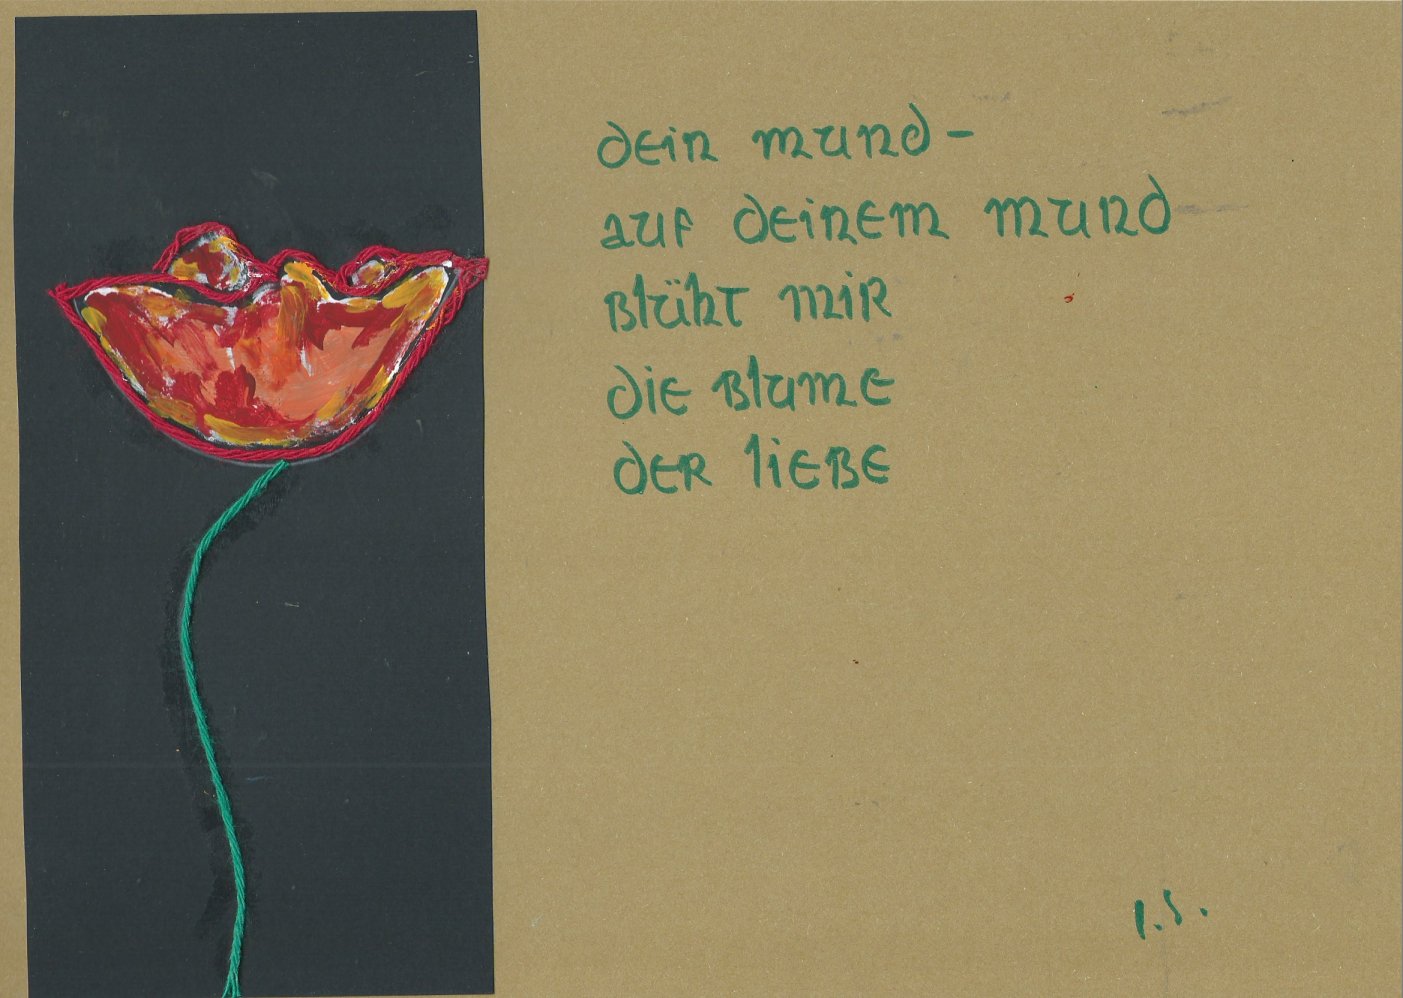 dein mund -
auf deinem mund
blüht mir
die blume
der liebe
I.S.